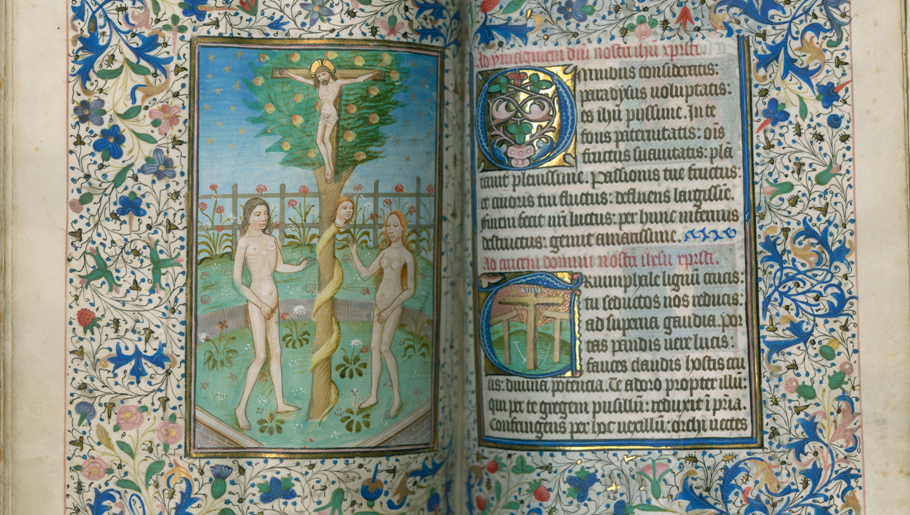 Ad vnigenitum dm̄ nostrū ihū xp̄stū.
Omnibus consideratis:
paradysus voluptatis:
es ihū pyssime. Inte
fons paternitatis: oīs
fructus suauitatis: plā
tauit plenissime. Passionis tue fructus:
et amoris tui fluctus: defluens largissīe.
per hunc inferius
destructus: gemit amarissime.
Ad crucem domini nostri ihesu xp̄sti.
Triumphale lignū crucis
tu seductos nos reducis:
ad superna gaudia. por
tas pandis vere lucis:
fauces claudis hostis tru
cis: diuina potencia. Te adoro propter illū:
qui per te gregem pusillū: reduxit ī p̄ria.
Confringens per hoc uexillū: